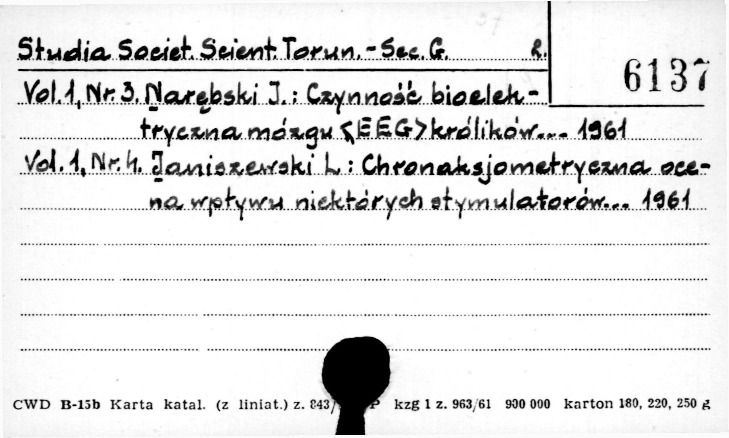 Studia Societ. Scient. Torun. - Sec. G. 2.
6137
Vol. 1, Nr. 3. Narębski J. : Czynność bioelek-
tryczna mózgu <EEG> królików... 1961
Vol. 1, Nr. 4. Janiszewski L : Chronaksjometryczna oce-
na wpływu niektórych stymulatorów... 1961
CWD B-15b Karta katal. (z liniat.) z. 843/ P kzg 1 z. 963/61 900 000 karton 180, 220, 250 g